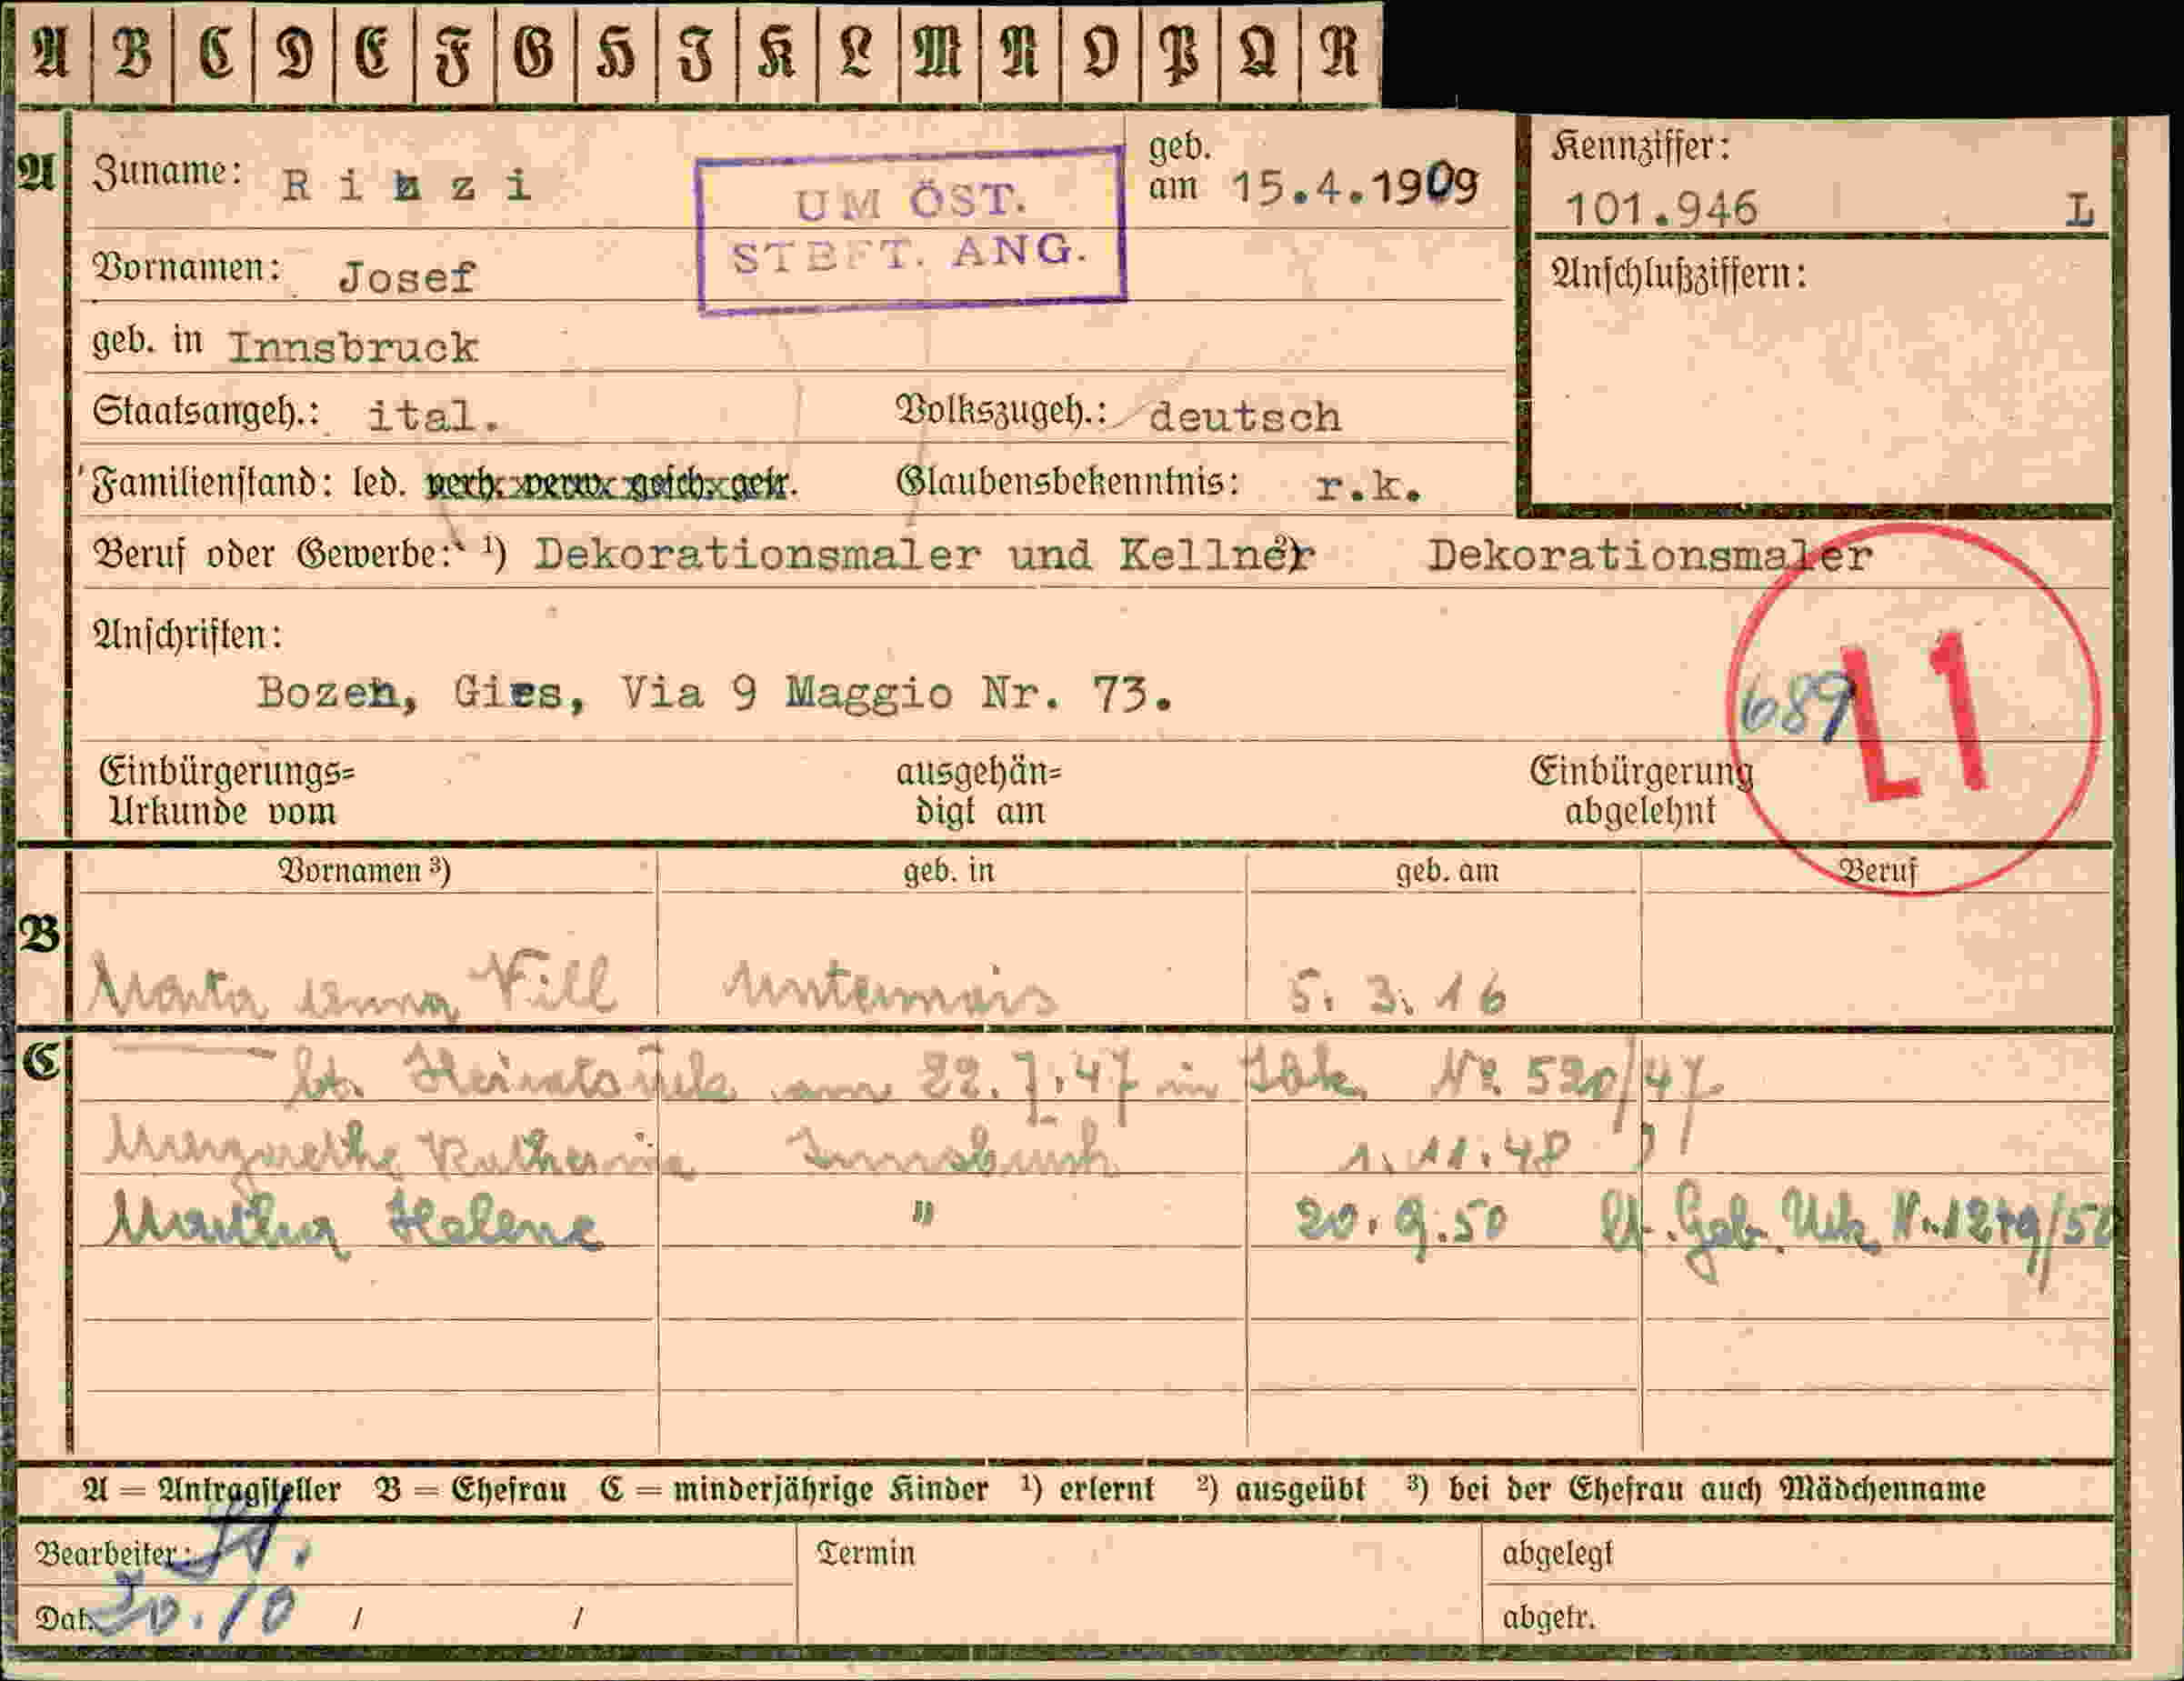 A B C D E F G H I K L M N O P Q R
A Zuname: Rizzi geb. am 15.4.1909 Kennziffer: 101.946 L
UM ÖST.
STBFT. ANG.
Vornamen: Josef Anschlußziffern:
geb. in Innsbruck
Staatsangeh.: ital. Volkszugeh.: deutsch
Familienstand: led. verh. verw. gesch. getr. Glaubensbekenntnis: r.k.
Beruf oder Gewerbe: ¹) Dekorationsmaler und Kellner Dekorationsmaler
Anschriften:
Bozen, Gies, Via 9 Maggio Nr. 73.
689 L1
Einbürgerungs= ausgehän= Einbürgerung
Urkunde vom digt am abgelehnt
Vornamen ³) geb. in geb. am Beruf
B
Marta Anna Vill Untermais 5. 3. 16
C
lt. Heiratsurk. am 22.7.47 in Ibk. Nr. 520/47
Margarethe Katherina Innsbruck 1.11.48
Martha Helene " 20.9.50 lt. Geb. Urk. Nr. 1279/50
A = Antragsteller B = Ehefrau C = minderjährige Kinder ¹) erlernt ²) ausgeübt ³) bei der Ehefrau auch Mädchenname
Bearbeiter: Termin abgelegt
Dat. 30.10 / / abgetr.